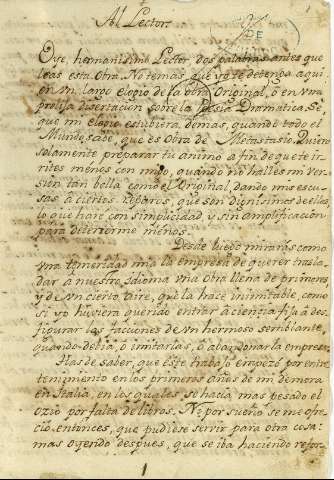 Al Lector.
DE
Oye, hermanisimo Lector dos palabras antes que
leas esta Obra. No temas, que yo te detenga aqui
en un largo elogio de la obra Original, ó en una
prolija disertacion sobre la Poesia Dramatica. Sé
que mi elogio estubiera demas, quando todo el
Mundo sabe, que es Obra de Metastasio. Quiero
solamente preparar tu animo a fin de que te ir
rites menos con migo, quando no halles mi ver
sion tan bella como el Original, dando mis escu
sas á ciertos reparos, que son dignisimos de ellas,
lo que haré con simplicidad y sin amplificacion
para detenerme menos.
Desde luego mirarás como
una temeridad mia la empresa de querer trasla
dar a nuestro Idioma una obra llena de primores,
y de un cierto aire, que la hace inimitable, como
si yo hubiera querido entrar á ciencia fija á des
figurar las facciones de un hermoso semblante,
quando debia, ó imitarlas, ó abandonar la empresa.
Has de saber, que este trabajo empezó por entre
tenimiento en los primeros años de mi demora
en Italia, en los quales se hacia mas pesado el
ozio por falta de libros. Ni por sueño se me ofre
ció entonces, que pudiese servir para otra cosa:
mas oyendo despues, que se iba haciendo repre-
1